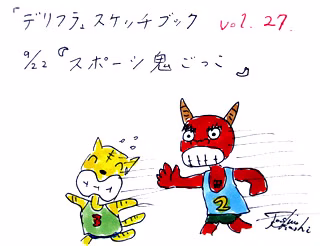 『デリフラ』スケッチブック vol.27.
9/22『スポーツ鬼ごっこ』
3
2